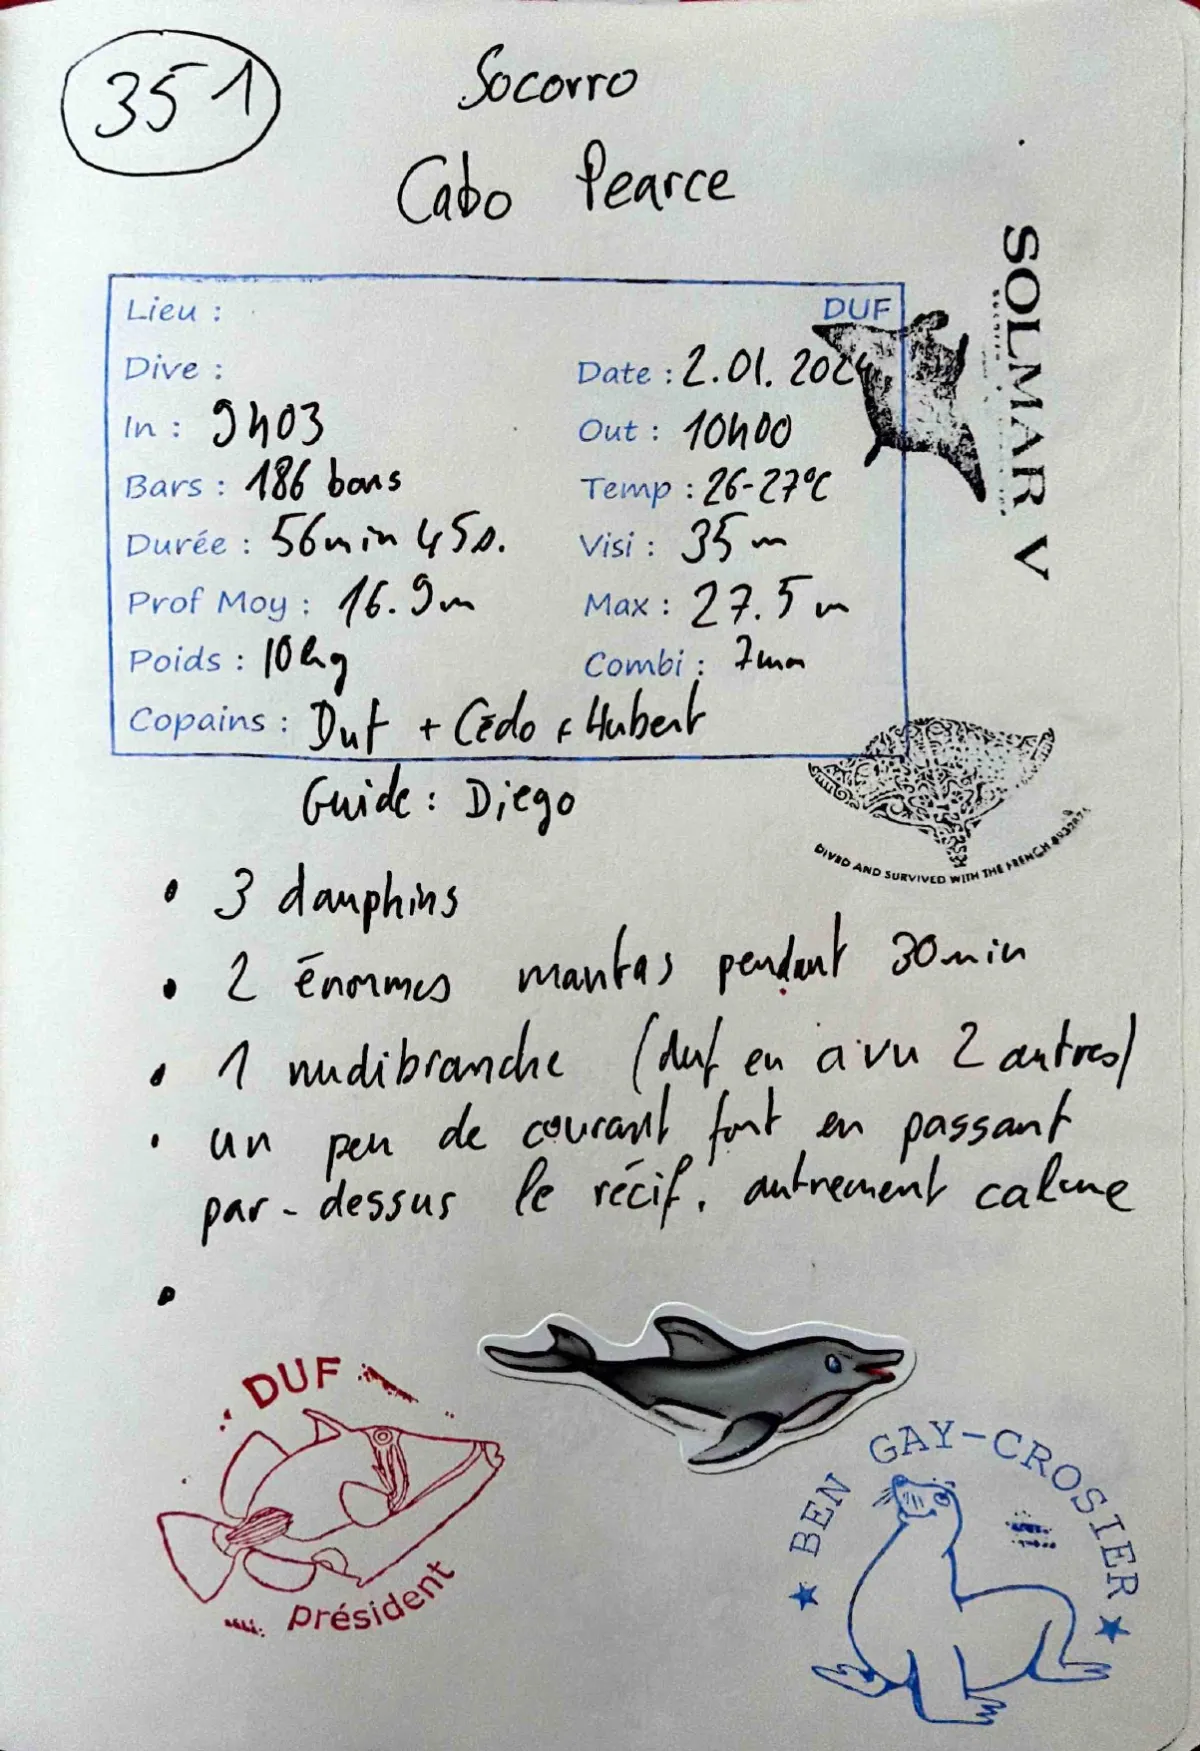 351
Socorro
Cabo Pearce
Lieu : DUF
Dive : Date : 2.01.2024
In : 9h03 Out : 10h00
Bars : 186 bars Temp : 26-27°C
Durée : 56min 45s. Visi : 35 m
Prof Moy : 16.9m Max : 27.5 m
Poids : 10kg Combi : 7mm
Copains : Duf + Cédo + Hubert
Guide : Diego
SOLMAR V
DIVED AND SURVIVED WITH THE FRENCH
• 3 dauphins
• 2 énormes mantas pendant 30min
• 1 nudibranche (duf en a vu 2 autres)
• un peu de courant fort en passant
par-dessus le récif. autrement calme
•
DUF
président
★ BEN GAY-CROSIER ★